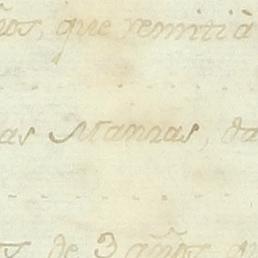 ños, que remitià
as Manzas, da
s de 3 años, qu